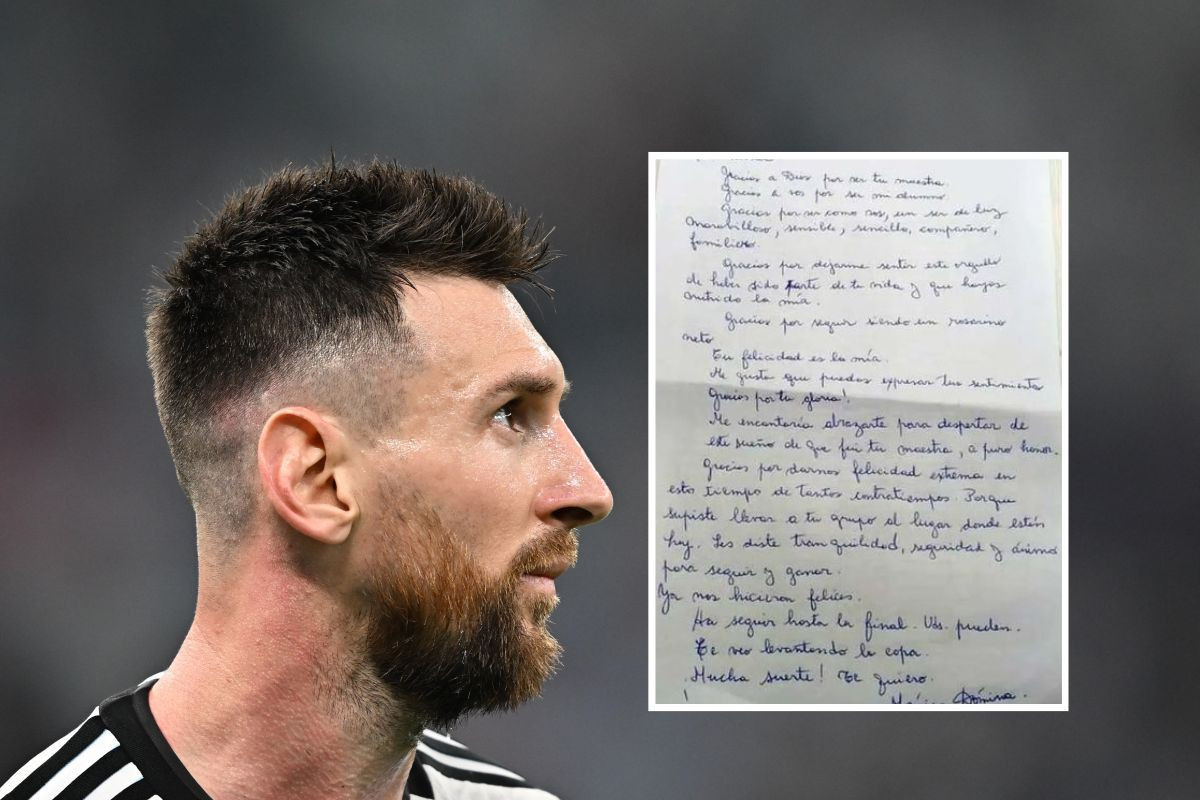 Gracias a Dios por ser tu maestra.
Gracias a vos por ser mi alumno.
Gracias por ser como sos, un ser de luz
maravilloso, sensible, sencillo, compañero,
familiero.
Gracias por dejarme sentir este orgullo
de haber sido parte de tu vida y que hayas
nutrido la mía.
Gracias por seguir siendo un rosarino
neto
Tu felicidad es la mía.
Me gusta que puedas expresar tus sentimientos
Gracias por tu gloria!
Me encantaría abrazarte para despertar de
este sueño de que fui tu maestra, a puro honor.
Gracias por darnos felicidad extrema en
este tiempo de tantos contratiempos. Porque
supiste llevar a tu grupo al lugar donde están
hoy. Les diste tranquilidad, seguridad y ánimo
para seguir y ganar.
Ya nos hicieron felices.
Ha seguir hasta la final. Uds. pueden.
Te veo levantando la copa.
Mucha suerte! Te quiero.
Mónica Dómina.